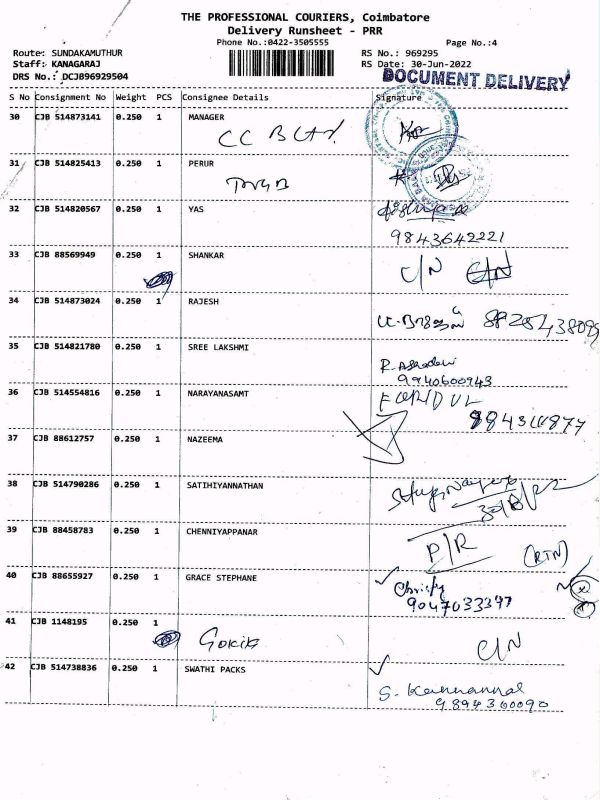 THE PROFESSIONAL COURIERS, Coimbatore
Delivery Runsheet - PRR
Phone No.:0422-3505555
Page No.:4
Route: SUNDAKAMUTHUR
RS No.: 969295
Staff: KANAGARAJ
RS Date: 30-Jun-2022
DRS No.: DCJB96929504
DOCUMENT DELIVERY
S No Consignment No Weight PCS Consignee Details Signature
30 CJB 514873141 0.250 1 MANAGER
31 CJB 514825413 0.250 1 PERUR
32 CJB 514820567 0.250 1 YAS
9843642221
33 CJB 88569949 0.250 1 SHANKAR
C/N C/N
34 CJB 514873024 0.250 1 RAJESH
35 CJB 514821780 0.250 1 SREE LAKSHMI
9940600943
36 CJB 514554816 0.250 1 NARAYANASAMT
37 CJB 88612757 0.250 1 NAZEEMA
38 CJB 514790286 0.250 1 SATIHIYANNATHAN
39 CJB 88458783 0.250 1 CHENNIYAPPANAR
P/R (RTN)
40 CJB 88655927 0.250 1 GRACE STEPHANE
Christy
41 CJB 1148195 0.250 1
C/N
42 CJB 514738836 0.250 1 SWATHI PACKS
S. Kannammal
9894360090